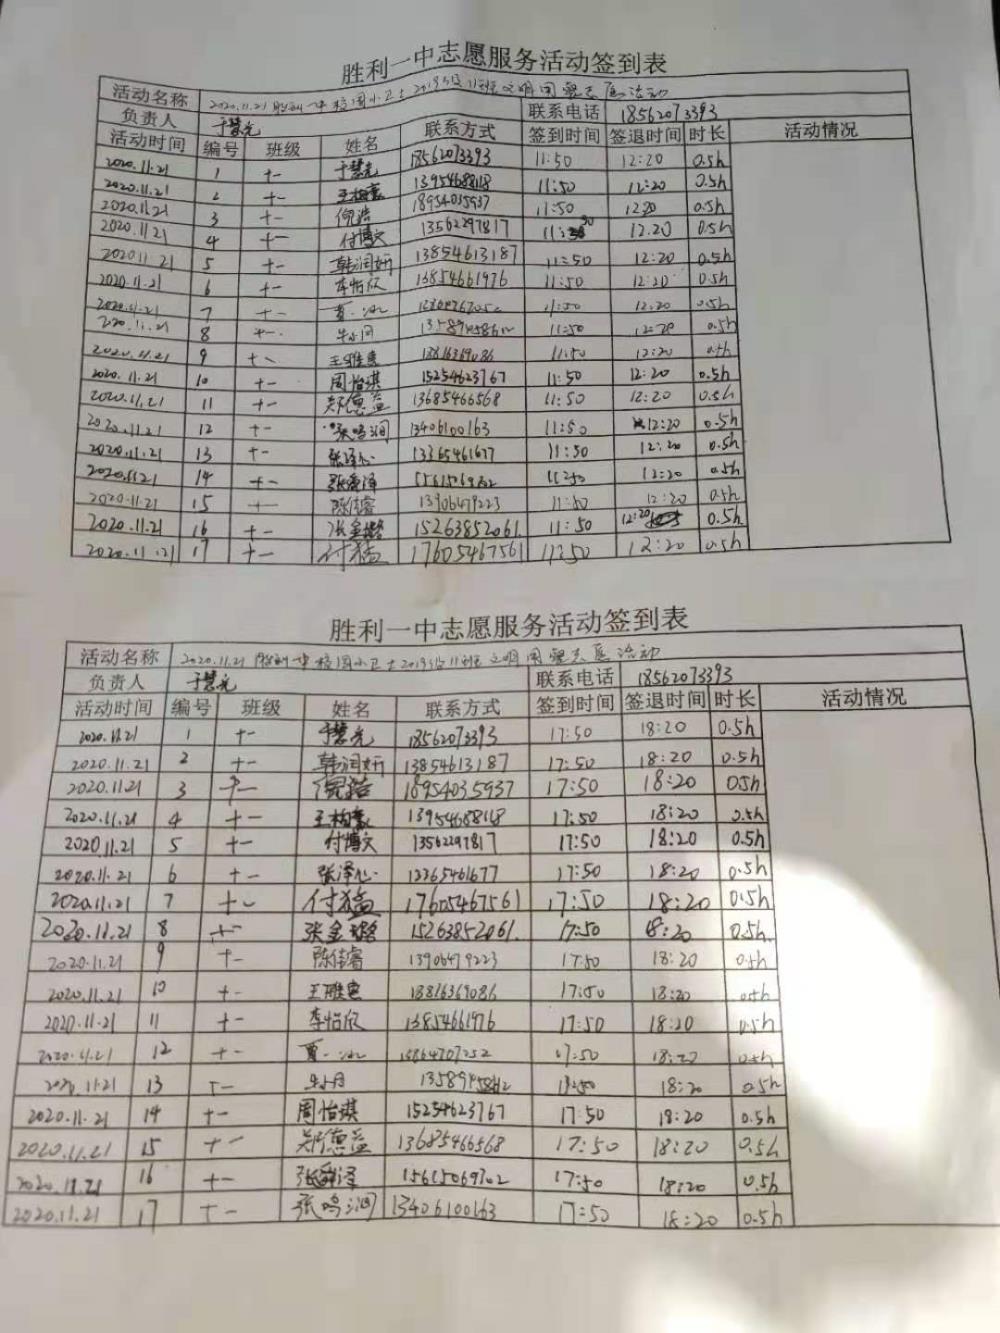 胜利一中志愿服务活动签到表
活动名称 2020.11.21 胜利一中校园小卫士2019级11班文明用餐志愿活动
负责人 于慧光 联系电话 18562073393
活动时间 编号 班级 姓名 联系方式 签到时间 签退时间 时长 活动情况
2020.11.21 1 十一 于慧光 18562073393 11:50 12:20 0.5h
2020.11.21 2 十一 13954688118 11:50 12:20 0.5h
2020.11.21 3 十一 倪浩 18954035937 11:50 12:20 0.5h
2020.11.21 4 十一 付博文 13562297817 11:50 12.20 0.5h
2020.11.21 5 十一 韩润妍 13854613187 11:50 12:20 0.5h
2020.11.21 6 十一 李怡欣 13854661976 11:50 12:20 0.5h
2020.11.21 7 十一 11:50 12:20 0.5h
2020.11.21 8 十一 11:50 12:20 0.5h
2020.11.21 9 十一 王雅惠 11:50 12:20 0.5h
2020.11.21 10 十一 周怡琪 15254623767 11:50 12:20 0.5h
2020.11.21 11 十一 郑德益 13685466568 11:50 12:20 0.5h
2020.11.21 12 十一 张鸣润 13406100163 11:50 12:20 0.5h
2020.11.21 13 十一 张泽心 13365461677 11:50 12:20 0.5h
2020.11.21 14 十一 11:50 12:20 0.5h
2020.11.21 15 十一 陈佳睿 13906479223 11:50 12:20 0.5h
2020.11.21 16 十一 张金璐 15263852061 11:50 12:20 0.5h
2020.11.21 17 十一 付猛 17605467561 11:50 12:20 0.5h
胜利一中志愿服务活动签到表
活动名称 2020.11.21 胜利一中校园小卫士2019级11班文明用餐志愿活动
负责人 于慧光 联系电话 18562073393
活动时间 编号 班级 姓名 联系方式 签到时间 签退时间 时长 活动情况
2020.11.21 1 十一 于慧光 18562073393 17:50 18:20 0.5h
2020.11.21 2 十一 韩润妍 13854613187 17:50 18:20 0.5h
2020.11.21 3 十一 倪浩 18954035937 17:50 18:20 0.5h
2020.11.21 4 十一 13954688118 17:50 18:20 0.5h
2020.11.21 5 十一 付博文 13562297817 17:50 18:20 0.5h
2020.11.21 6 十一 张泽心 13365461677 17:50 18:20 0.5h
2020.11.21 7 十一 付猛 17605467561 17:50 18:20 0.5h
2020.11.21 8 十一 张金璐 15263852061 17:50 18:20 0.5h
2020.11.21 9 十一 陈佳睿 13906479223 17:50 18:20 0.5h
2020.11.21 10 十一 王雅惠 17:50 18:20 0.5h
2020.11.21 11 十一 李怡欣 13854661976 17:50 18:20 0.5h
2020.11.21 12 十一 17:50 18:20 0.5h
2020.11.21 13 十一 17:50 18:20 0.5h
2020.11.21 14 十一 周怡琪 15254623767 17:50 18:20 0.5h
2020.11.21 15 十一 郑德益 13685466568 17:50 18:20 0.5h
2020.11.21 16 十一 17:50 18:20 0.5h
2020.11.21 17 十一 张鸣润 13406100163 17:50 18:20 0.5h